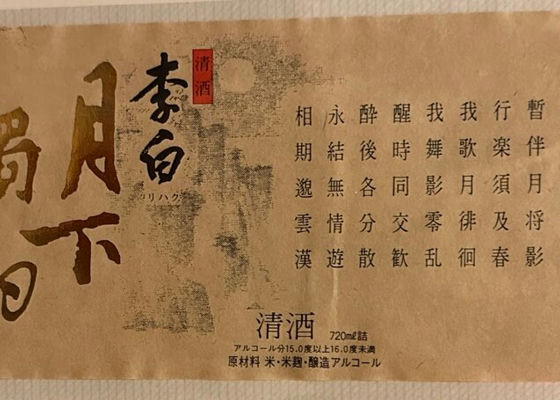 暫伴月将影
行楽須及春
我歌月徘徊
我舞影零乱
醒時同交歓
酔後各分散
永結無情遊
相期邈雲漢
清酒
李白
リハク
月下
清酒 720㎖詰
アルコール分15.0度以上16.0度未満
原材料 米・米麹・醸造アルコール